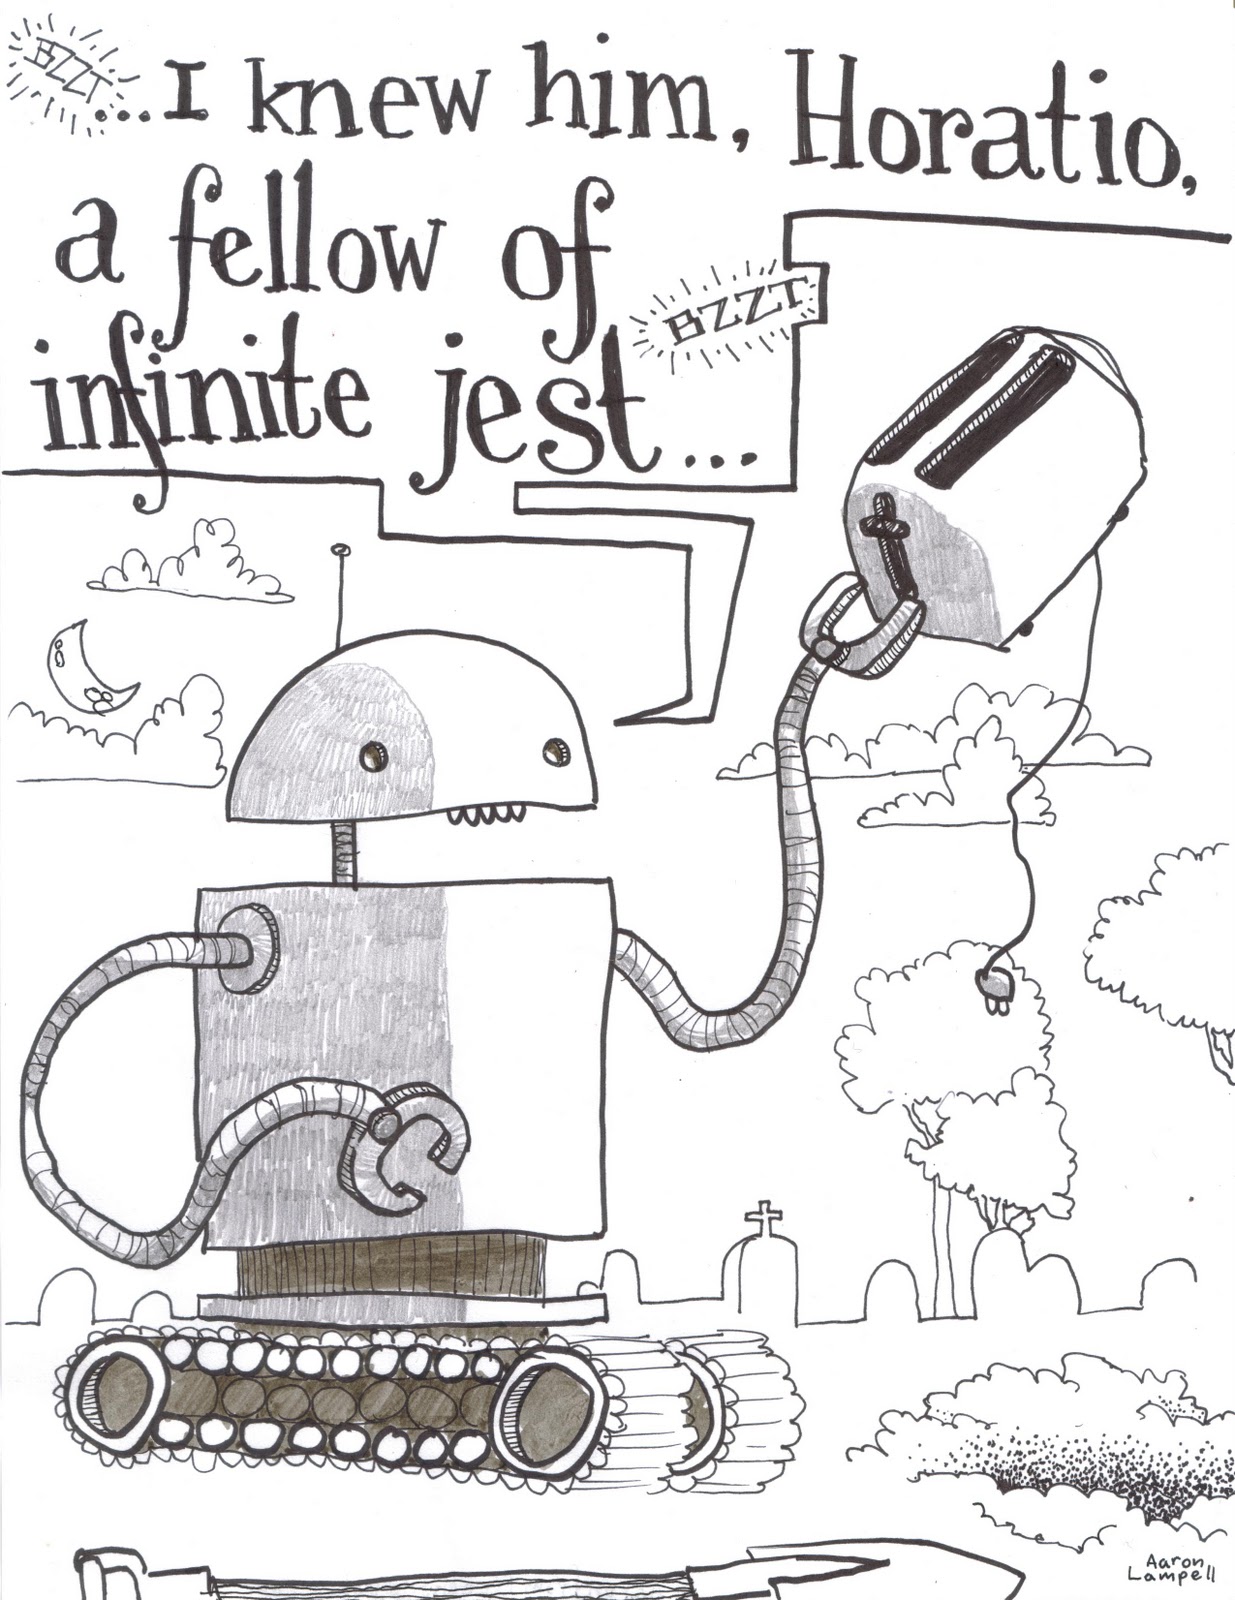 BZZT
...I knew him, Horatio,
a fellow of
infinite jest...
BZZT
Aaron
Lampell